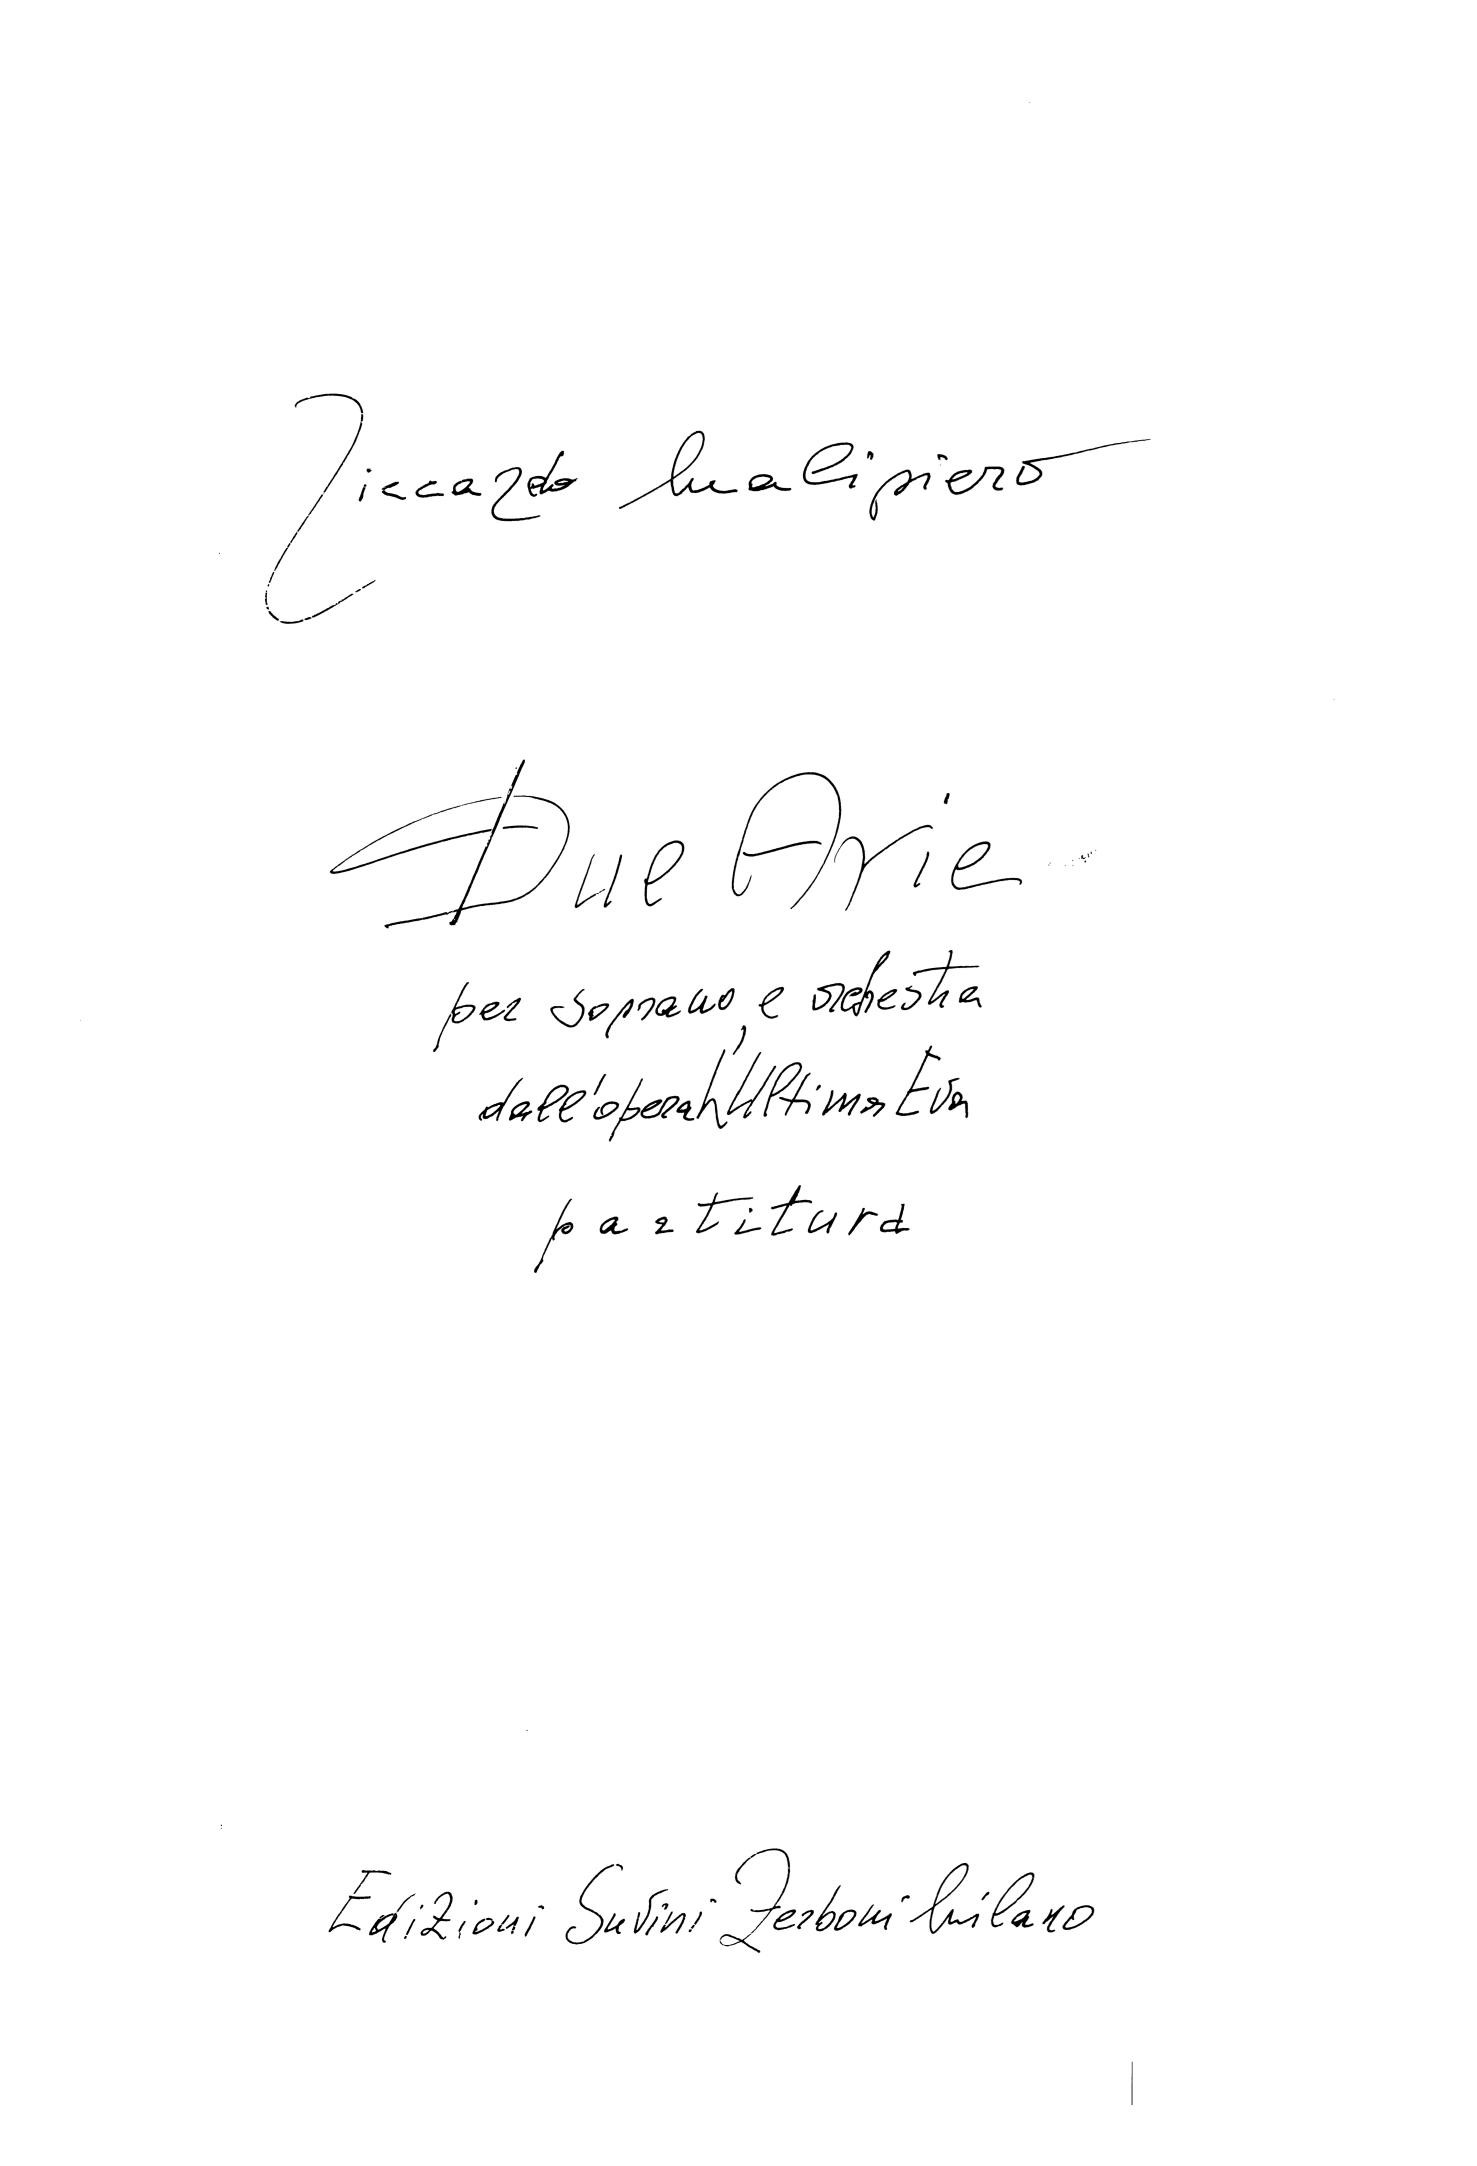 Riccardo Malipiero
Due Arie
per soprano e orchestra
dall'opera L'Ultima Eva
partitura
Edizioni Suvini Zerboni Milano